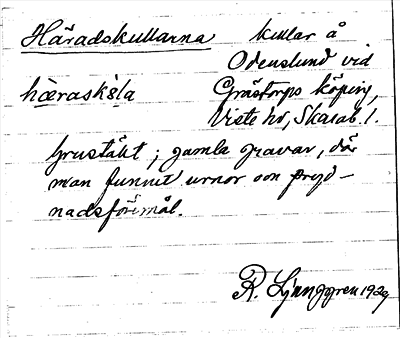 Häradskullarna kullar å
Odenslund vid
hæraskəla Grästorps köping,
Viste hd, Skarab. l.
Grustäkt; gamla gravar, där
man funnit urnor och pryd-
nadsföremål.
R. Ljunggren 1929